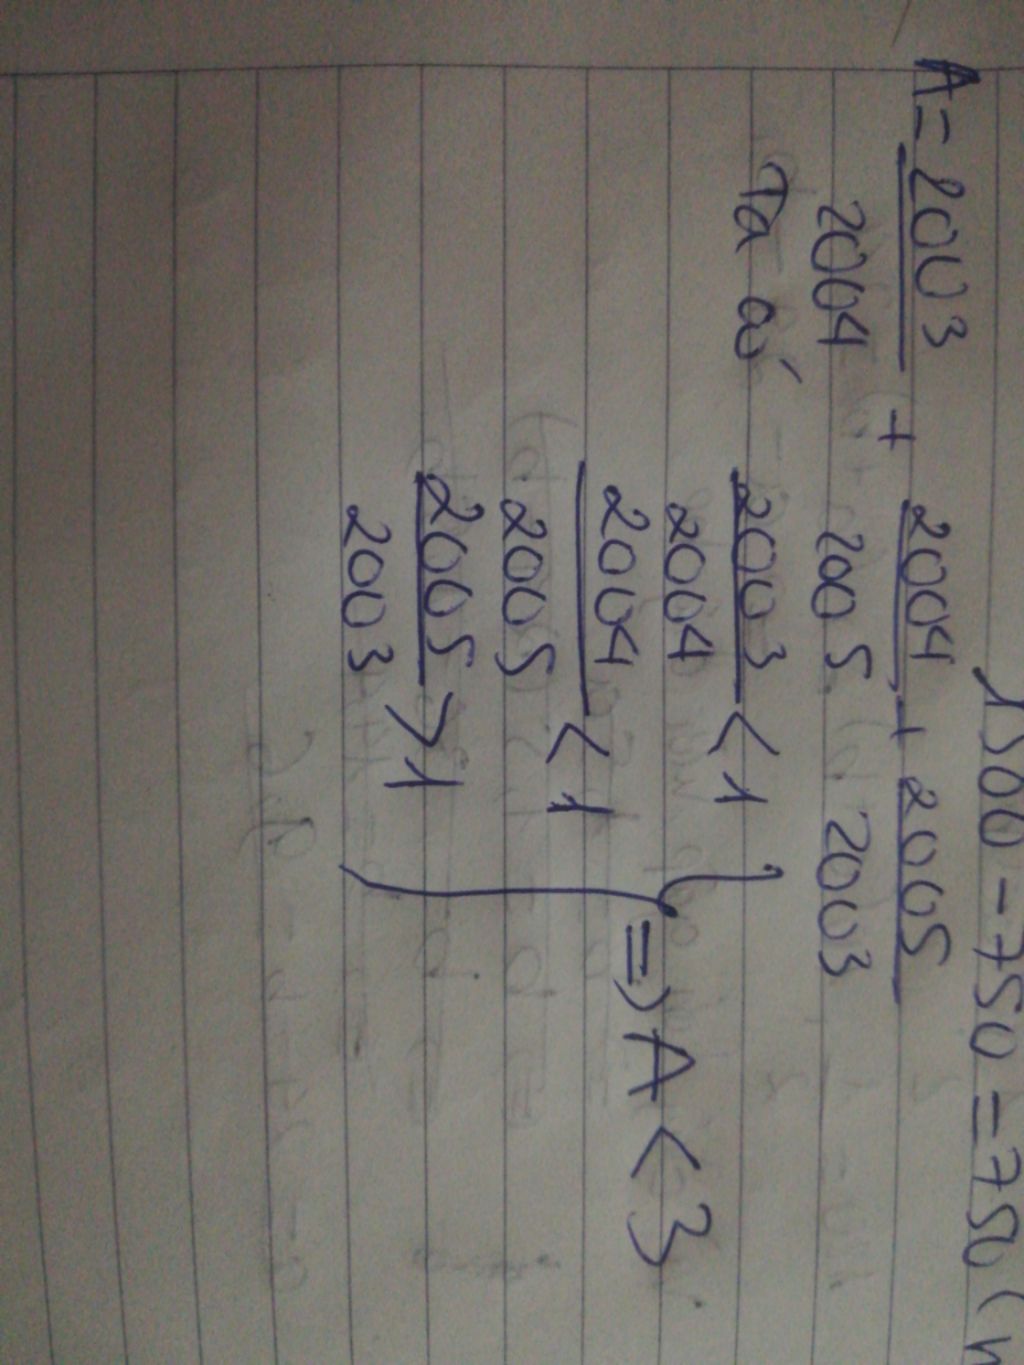 1500 - 750 = 750 (
A = 2003/2004 + 2004/2005 + 2005/2003
Ta có 2003/2004 < 1
2004/2005 < 1
2005/2003 > 1
} => A < 3